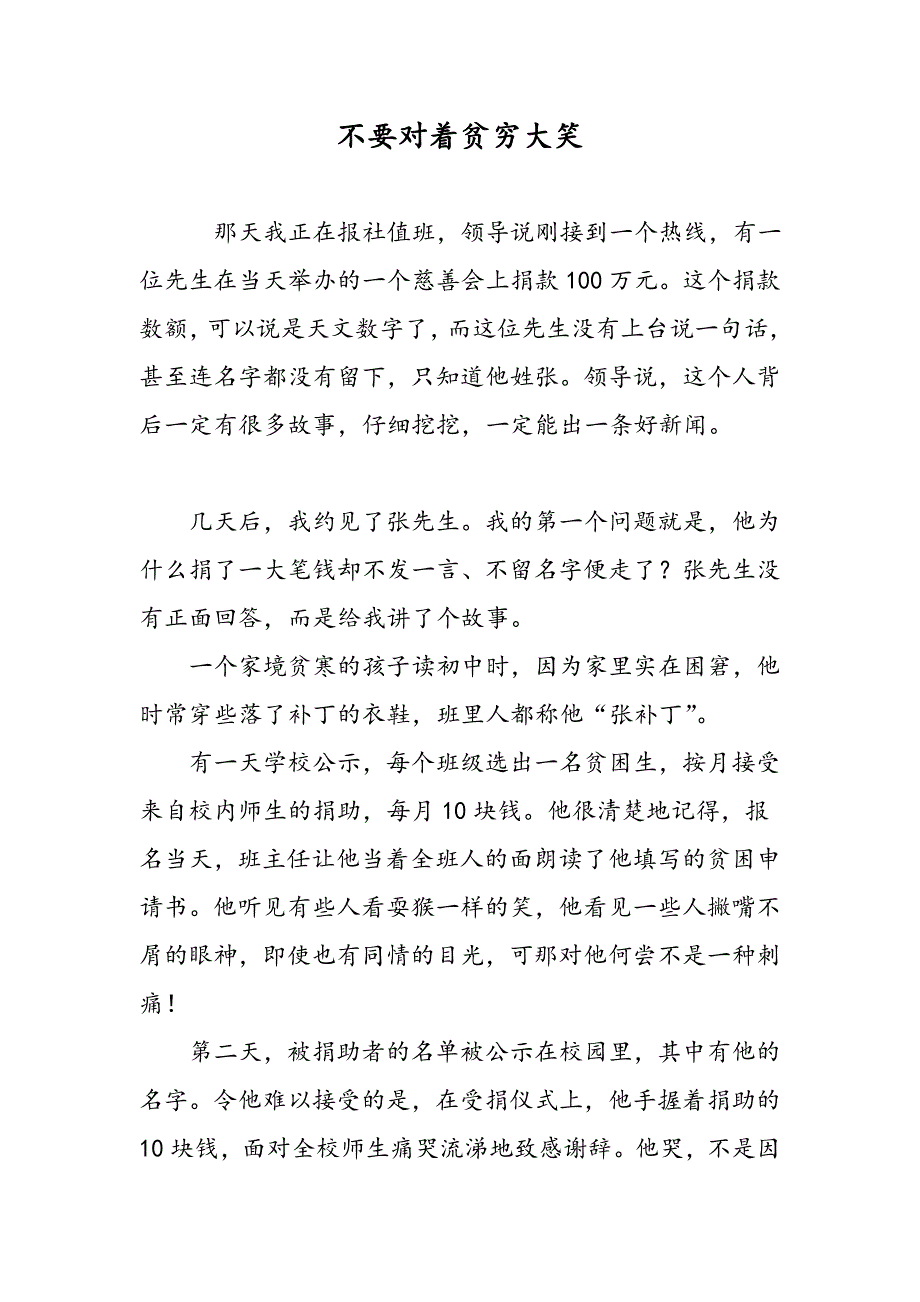 不要对着贫穷大笑
那天我正在报社值班，领导说刚接到一个热线，有一
位先生在当天举办的一个慈善会上捐款 100 万元。这个捐款
数额，可以说是天文数字了，而这位先生没有上台说一句话，
甚至连名字都没有留下，只知道他姓张。领导说，这个人背
后一定有很多故事，仔细挖挖，一定能出一条好新闻。
几天后，我约见了张先生。我的第一个问题就是，他为
什么捐了一大笔钱却不发一言、不留名字便走了？张先生没
有正面回答，而是给我讲了个故事。
一个家境贫寒的孩子读初中时，因为家里实在困窘，他
时常穿些落了补丁的衣鞋，班里人都称他“张补丁”。
有一天学校公示，每个班级选出一名贫困生，按月接受
来自校内师生的捐助，每月 10 块钱。他很清楚地记得，报
名当天，班主任让他当着全班人的面朗读了他填写的贫困申
请书。他听见有些人看耍猴一样的笑，他看见一些人撇嘴不
屑的眼神，即使也有同情的目光，可那对他何尝不是一种刺
痛！
第二天，被捐助者的名单被公示在校园里，其中有他的
名字。令他难以接受的是，在受捐仪式上，他手握着捐助的
10 块钱，面对全校师生痛哭流涕地致感谢辞。他哭，不是因